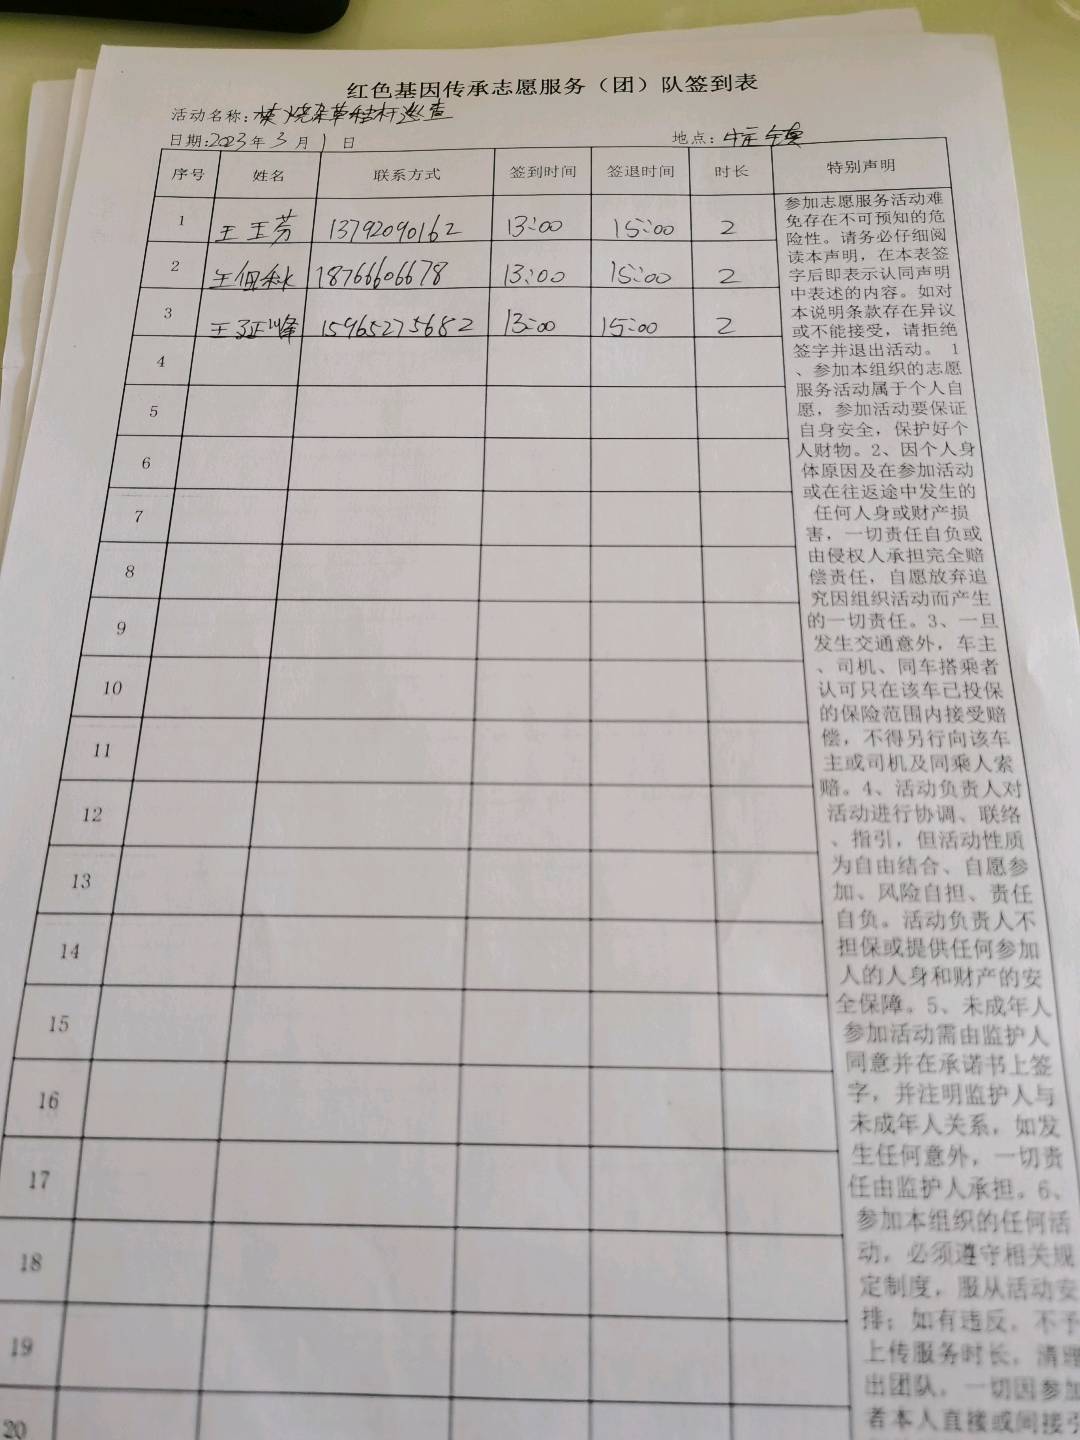 红色基因传承志愿服务（团）队签到表
活动名称：焚烧杂草秸秆巡查
日期：2023年3月1日 地点：
序号 姓名 联系方式 签到时间 签退时间 时长 特别声明
1 王玉芳 13792090162 13:00 15:00 2
2 王佩秋 18766606678 13:00 15:00 2
3 王延峰 15965275682 13:00 15:00 2
4
5
6
7
8
9
10
11
12
13
14
15
16
17
18
19
20
参加志愿服务活动难
免存在不可预知的危
险性。请务必仔细阅
读本声明，在本表签
字后即表示认同声明
中表述的内容。如对
本说明条款存在异议
或不能接受，请拒绝
签字并退出活动。 1
、参加本组织的志愿
服务活动属于个人自
愿，参加活动要保证
自身安全，保护好个
人财物。2、因个人身
体原因及在参加活动
或在往返途中发生的
任何人身或财产损
害，一切责任自负或
由侵权人承担完全赔
偿责任，自愿放弃追
究因组织活动而产生
的一切责任。3、一旦
发生交通意外，车主
、司机、同车搭乘者
认可只在该车已投保
的保险范围内接受赔
偿，不得另行向该车
主或司机及同乘人索
赔。4、活动负责人对
活动进行协调、联络
、指引，但活动性质
为自由结合、自愿参
加、风险自担、责任
自负。活动负责人不
担保或提供任何参加
人的人身和财产的安
全保障。5、未成年人
参加活动需由监护人
同意并在承诺书上签
字，并注明监护人与
未成年人关系，如发
生任何意外，一切责
任由监护人承担。6、
参加本组织的任何活
动，必须遵守相关规
定制度，服从活动安
排；如有违反，不予
上传服务时长，清理
出团队。一切因参加
者本人直接或间接引